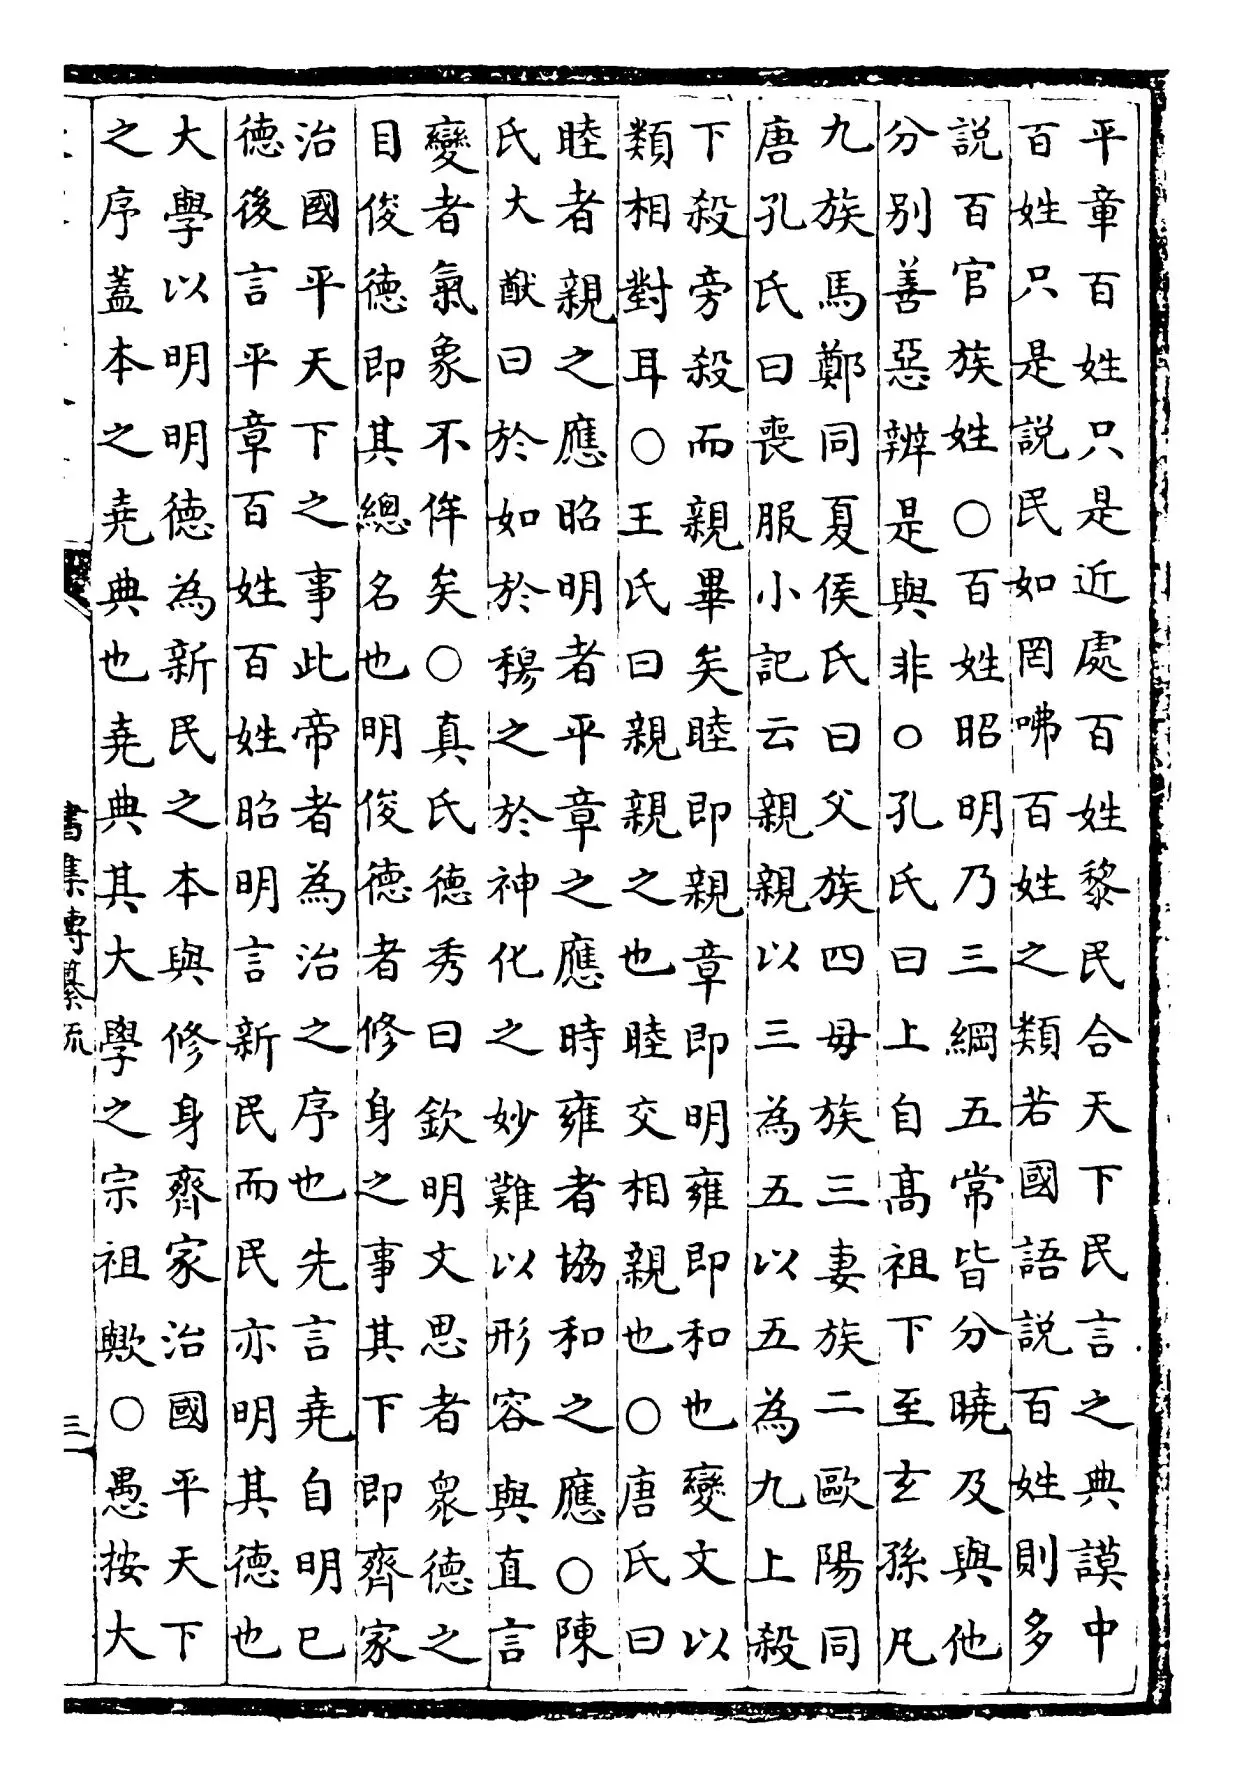 平章百姓只是近處百姓黎民合天下民言之典謨中
百姓只是説民如罔咈百姓之類若國語説百姓則多
説百官族姓○百姓昭明乃三綱五常皆分曉及與他
分别善惡辨是與非○孔氏曰上自高祖下至玄孫凡
九族馬鄭同夏侯氏曰父族四母族三妻族二歐陽同
唐孔氏曰喪服小記云親親以三為五以五為九上殺
下殺旁殺而親畢矣睦即親章即明雍即和也變文以
類相對耳○王氏曰親親之也睦交相親也○唐氏曰
睦者親之應昭明者平章之應時雍者協和之應○陳
氏大猷曰於如於穆之於神化之妙難以形容與直言
變者氣象不侔矣○真氏德秀曰欽明文思者衆德之
目俊德即其總名也明俊德者修身之事其下即齊家
治國平天下之事此帝者為治之序也先言堯自明已
德後言平章百姓百姓昭明言新民而民亦明其德也
大學以明明德為新民之本與修身齊家治國平天下
之序蓋本之堯典也堯典其大學之宗祖歟○愚按大
書集傳纂疏
三